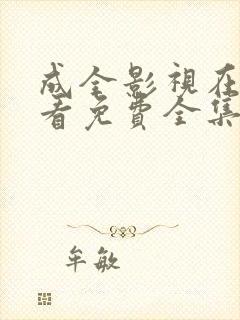 成全影視在
看免費全集
牟敏